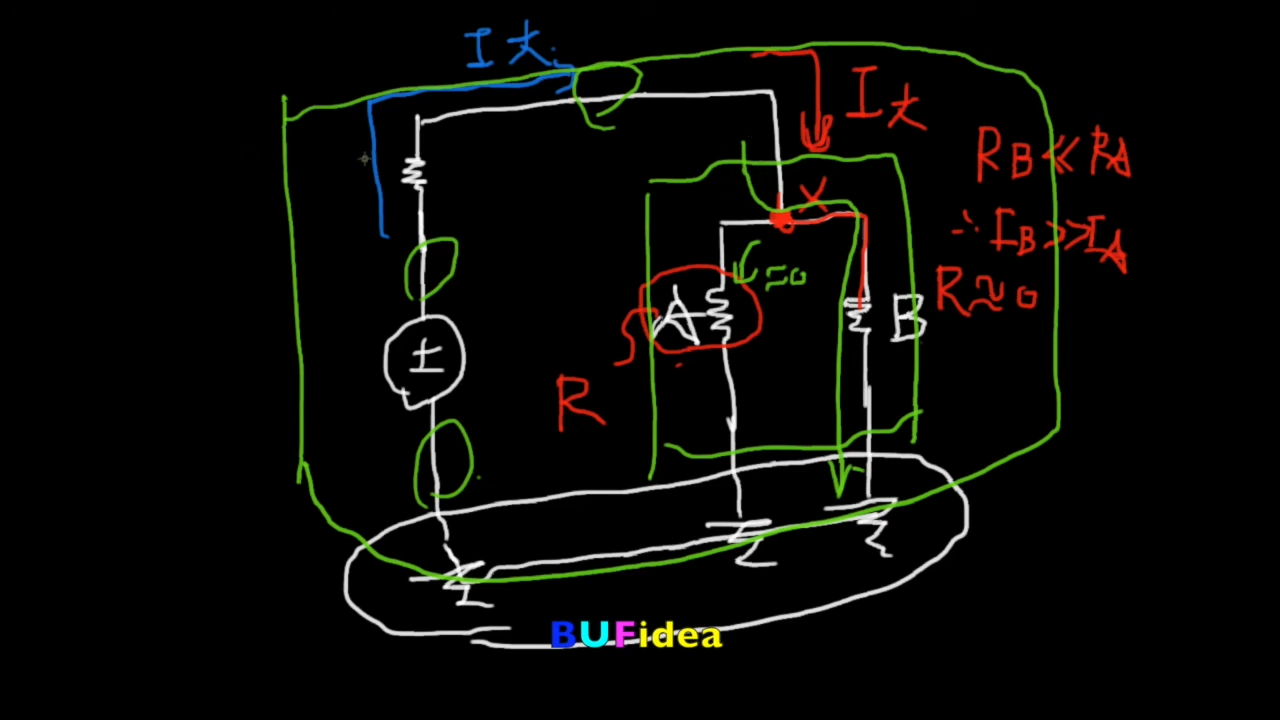 It
It
RB << RA
∴ IB >> IA
R≈0
X
≈0
A
B
±
R
BUFidea